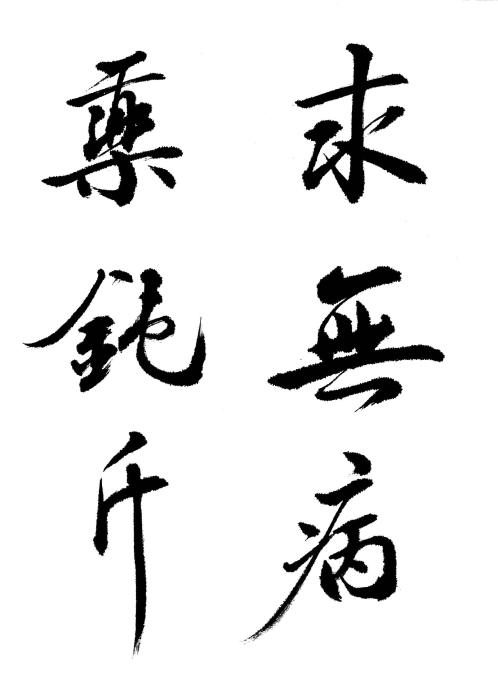 求無病
藥鈍斤